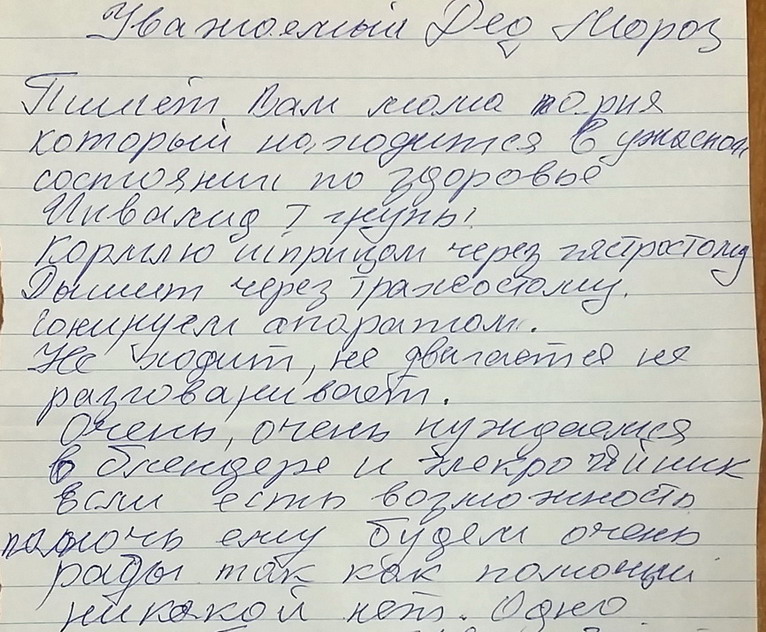 Уважаемый Дед Мороз
Пишет Вам мама парня
который находится в ужасном
состоянии по здоровье
Инвалид I групы.
Кормлю шприцом через гястростому
Дышит через Трахеостому.
сонируем апаратом.
Не ходит, не двигается не
разговаривает.
Очень, очень нуждаемся
в блендере и элекрочяйник
если есть возможность
помочь ему будем очень
рады так как помощи
никакой нет. Одно